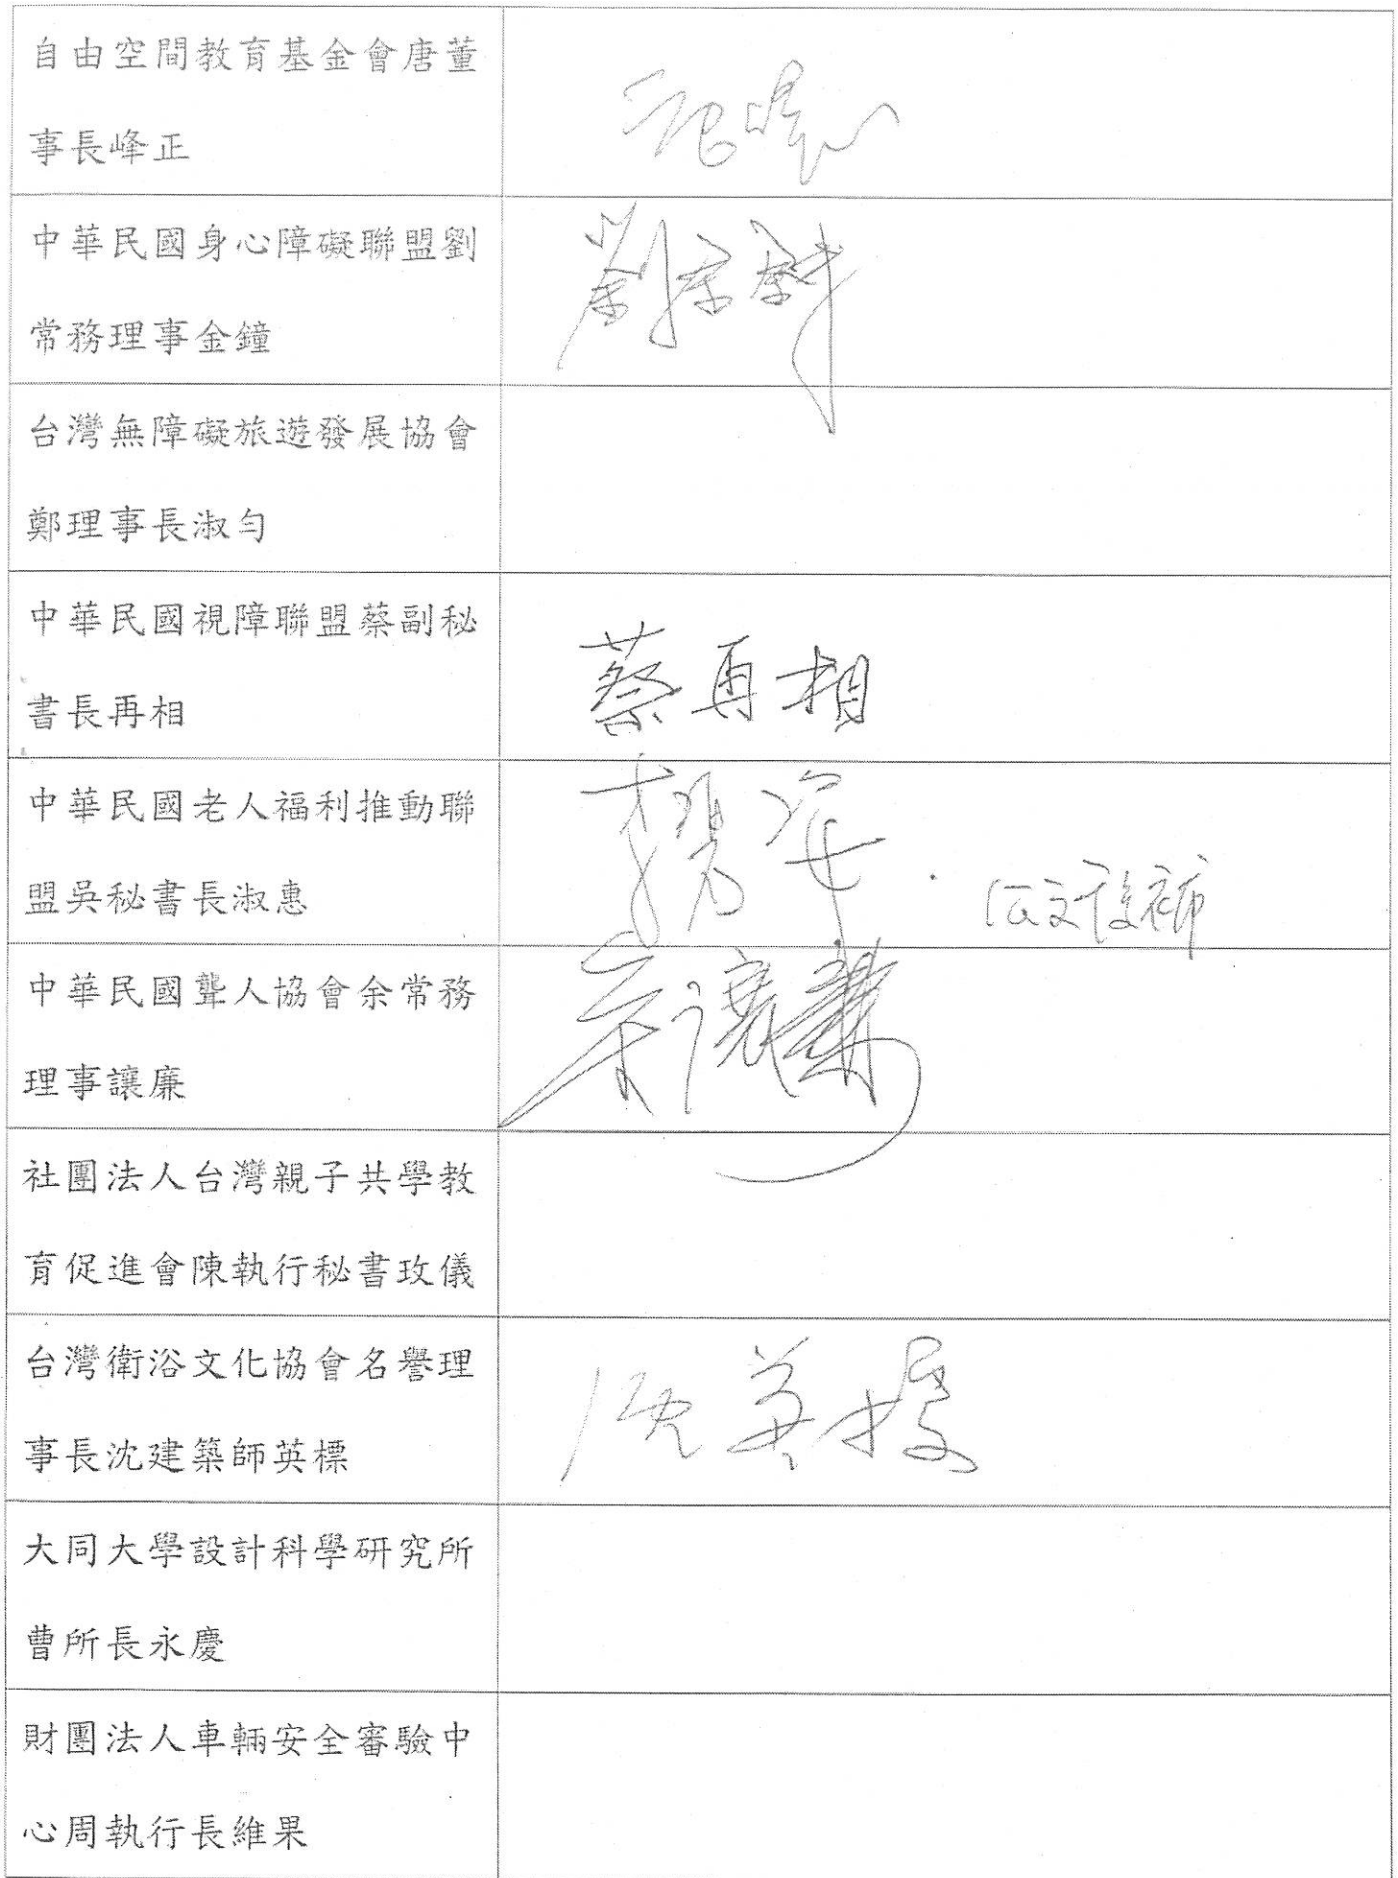 自由空間教育基金會唐董
事長峰正
中華民國身心障礙聯盟劉
常務理事金鐘
劉金鐘
台灣無障礙旅遊發展協會
鄭理事長淑勻
中華民國視障聯盟蔡副秘
書長再相
蔡再相
中華民國老人福利推動聯
盟吳秘書長淑惠
公文後補
中華民國聾人協會余常務
理事讓廉
余讓廉
社團法人台灣親子共學教
育促進會陳執行秘書玫儀
台灣衛浴文化協會名譽理
事長沈建築師英標
沈英標
大同大學設計科學研究所
曹所長永慶
財團法人車輛安全審驗中
心周執行長維果